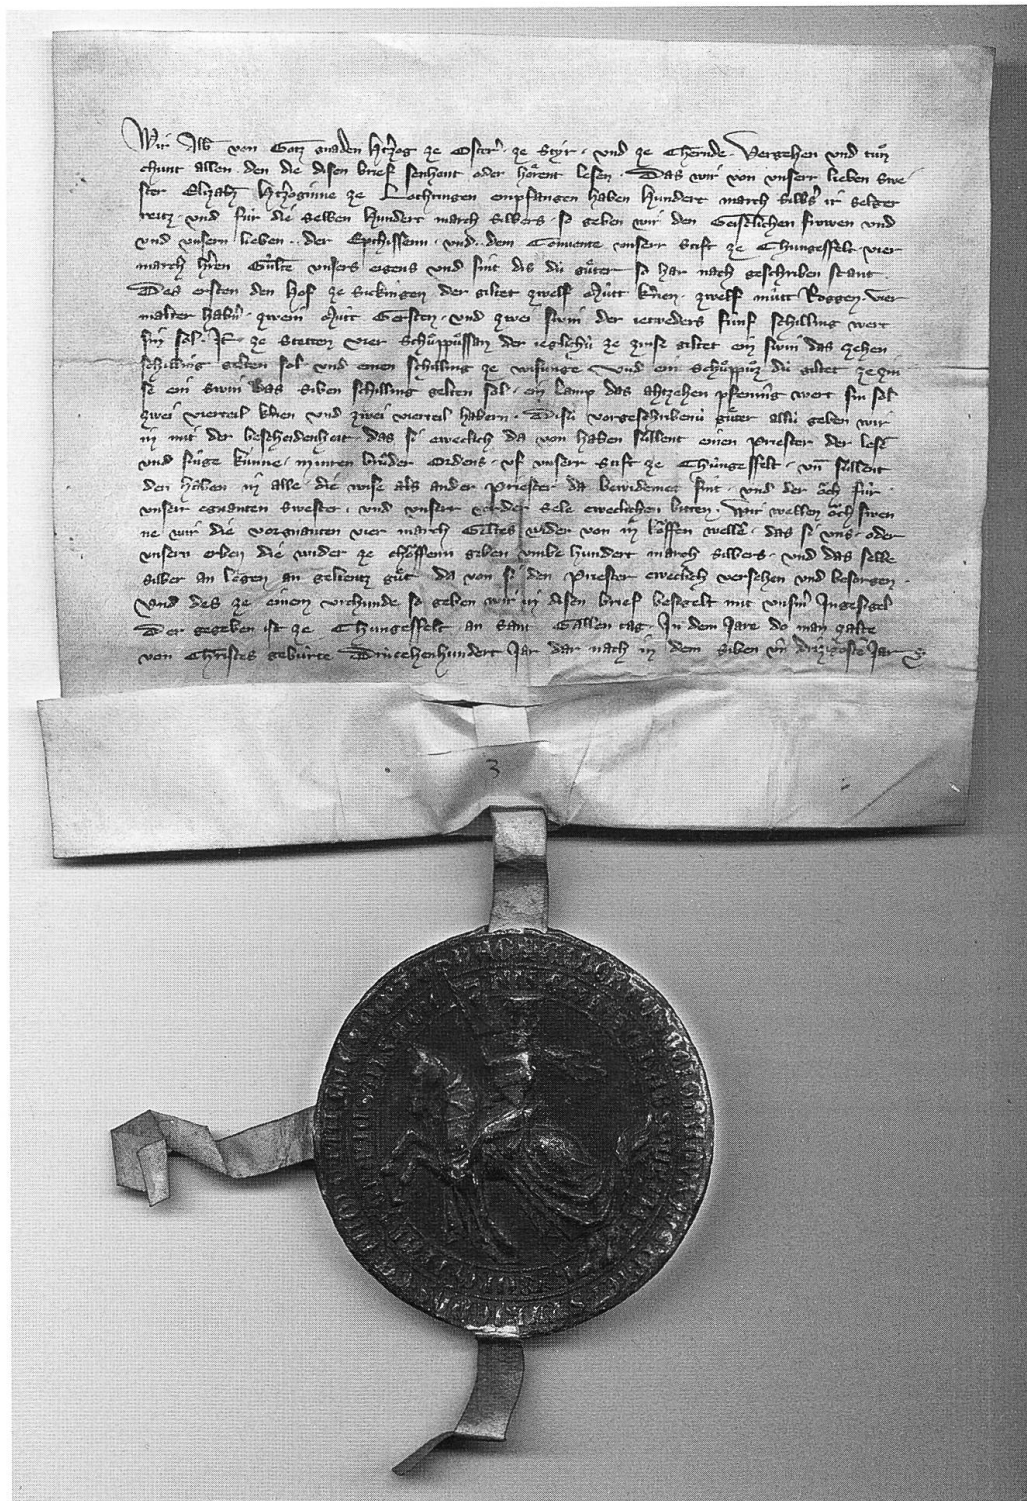 Wir Alb von Gotz gnaden Hertzog ze Oster ze Styr und ze Chernde. Vergehen und tuͦn
chunt allen den die disen brief sehent oder hoͤrent lesen. Das wir von unserr lieben Swe
ster Elyzabet Hertzoginne ze Lothringen empfangen haben hundert march silbers ir Selger
retz und fuͥr die selben hundert march silbers so geben wir den Geistlichen frowen und
und unsern lieben der Eptissenn und dem Convente unserr Stift ze Chungesfelt vier
march Guͥlte unsers eigens und sint dis duͥ guͤter so har nach geschriben stant
Des ersten den hof ze Sickingen der giltet zwelf Muͥtt zwelf muͥtt Roggen vier
malter habern zwein Mutt Gersten und zwei swin der ietweders fuͥnf schilling wert
sin sol. It ze Stetten vier Schuͦppussan der ieglichuͥ ze zinse giltet ein swin das zehen
schilling gelten sol und einen schilling ze wisunge Und ein Schuͦppuͦz duͥ giltet ze zin
se ein swin das siben schilling gelten sol ein lamp das ahtzehen pfenning wert sin sol
zwei vierteil und zwei vierteil habern. Disuͥ vorgeschribenuͥ guͤter alluͥ geben wir
in mit der bescheidenheit das si eweclich da von haben suͥllent einen Priester der lese
und singe kunne minren bruͦder Ordens uf unserr Stift ze Chuͥngesfelt un suͥllent
den haben in alle die wise als ander Priester da bewidemet sint und der oͮch fuͥr
unserr egnanten Swester und unserr vorder Sele eweclichen bitten. Wir wellen oͮch swen
ne wir die vorgnanten vier march Geltes wider von in koͮffen welle das si uns oder
unsern erben die wider ze choͮffenn geben umbe hundert march silbers und das selbe
silber an legen an gelientz guͦt da von si den Priester eweclich versehen und besorgen
Und des ze einem urchunde so geben wir in disen brief besigelt mit unserm Ingesigel
Der gegeben ist ze Chungesfelt an sant Gallen tag In dem Jare do man zalte
von Christes geburte Druͥcehenhundert Jar dar nach in dem siben un drizigosten Jar
3